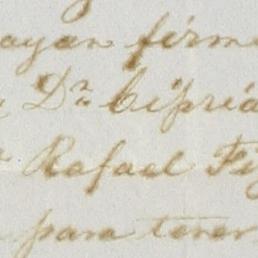 ayan firm
Dr. Cipria
Rafael Fi
para tener